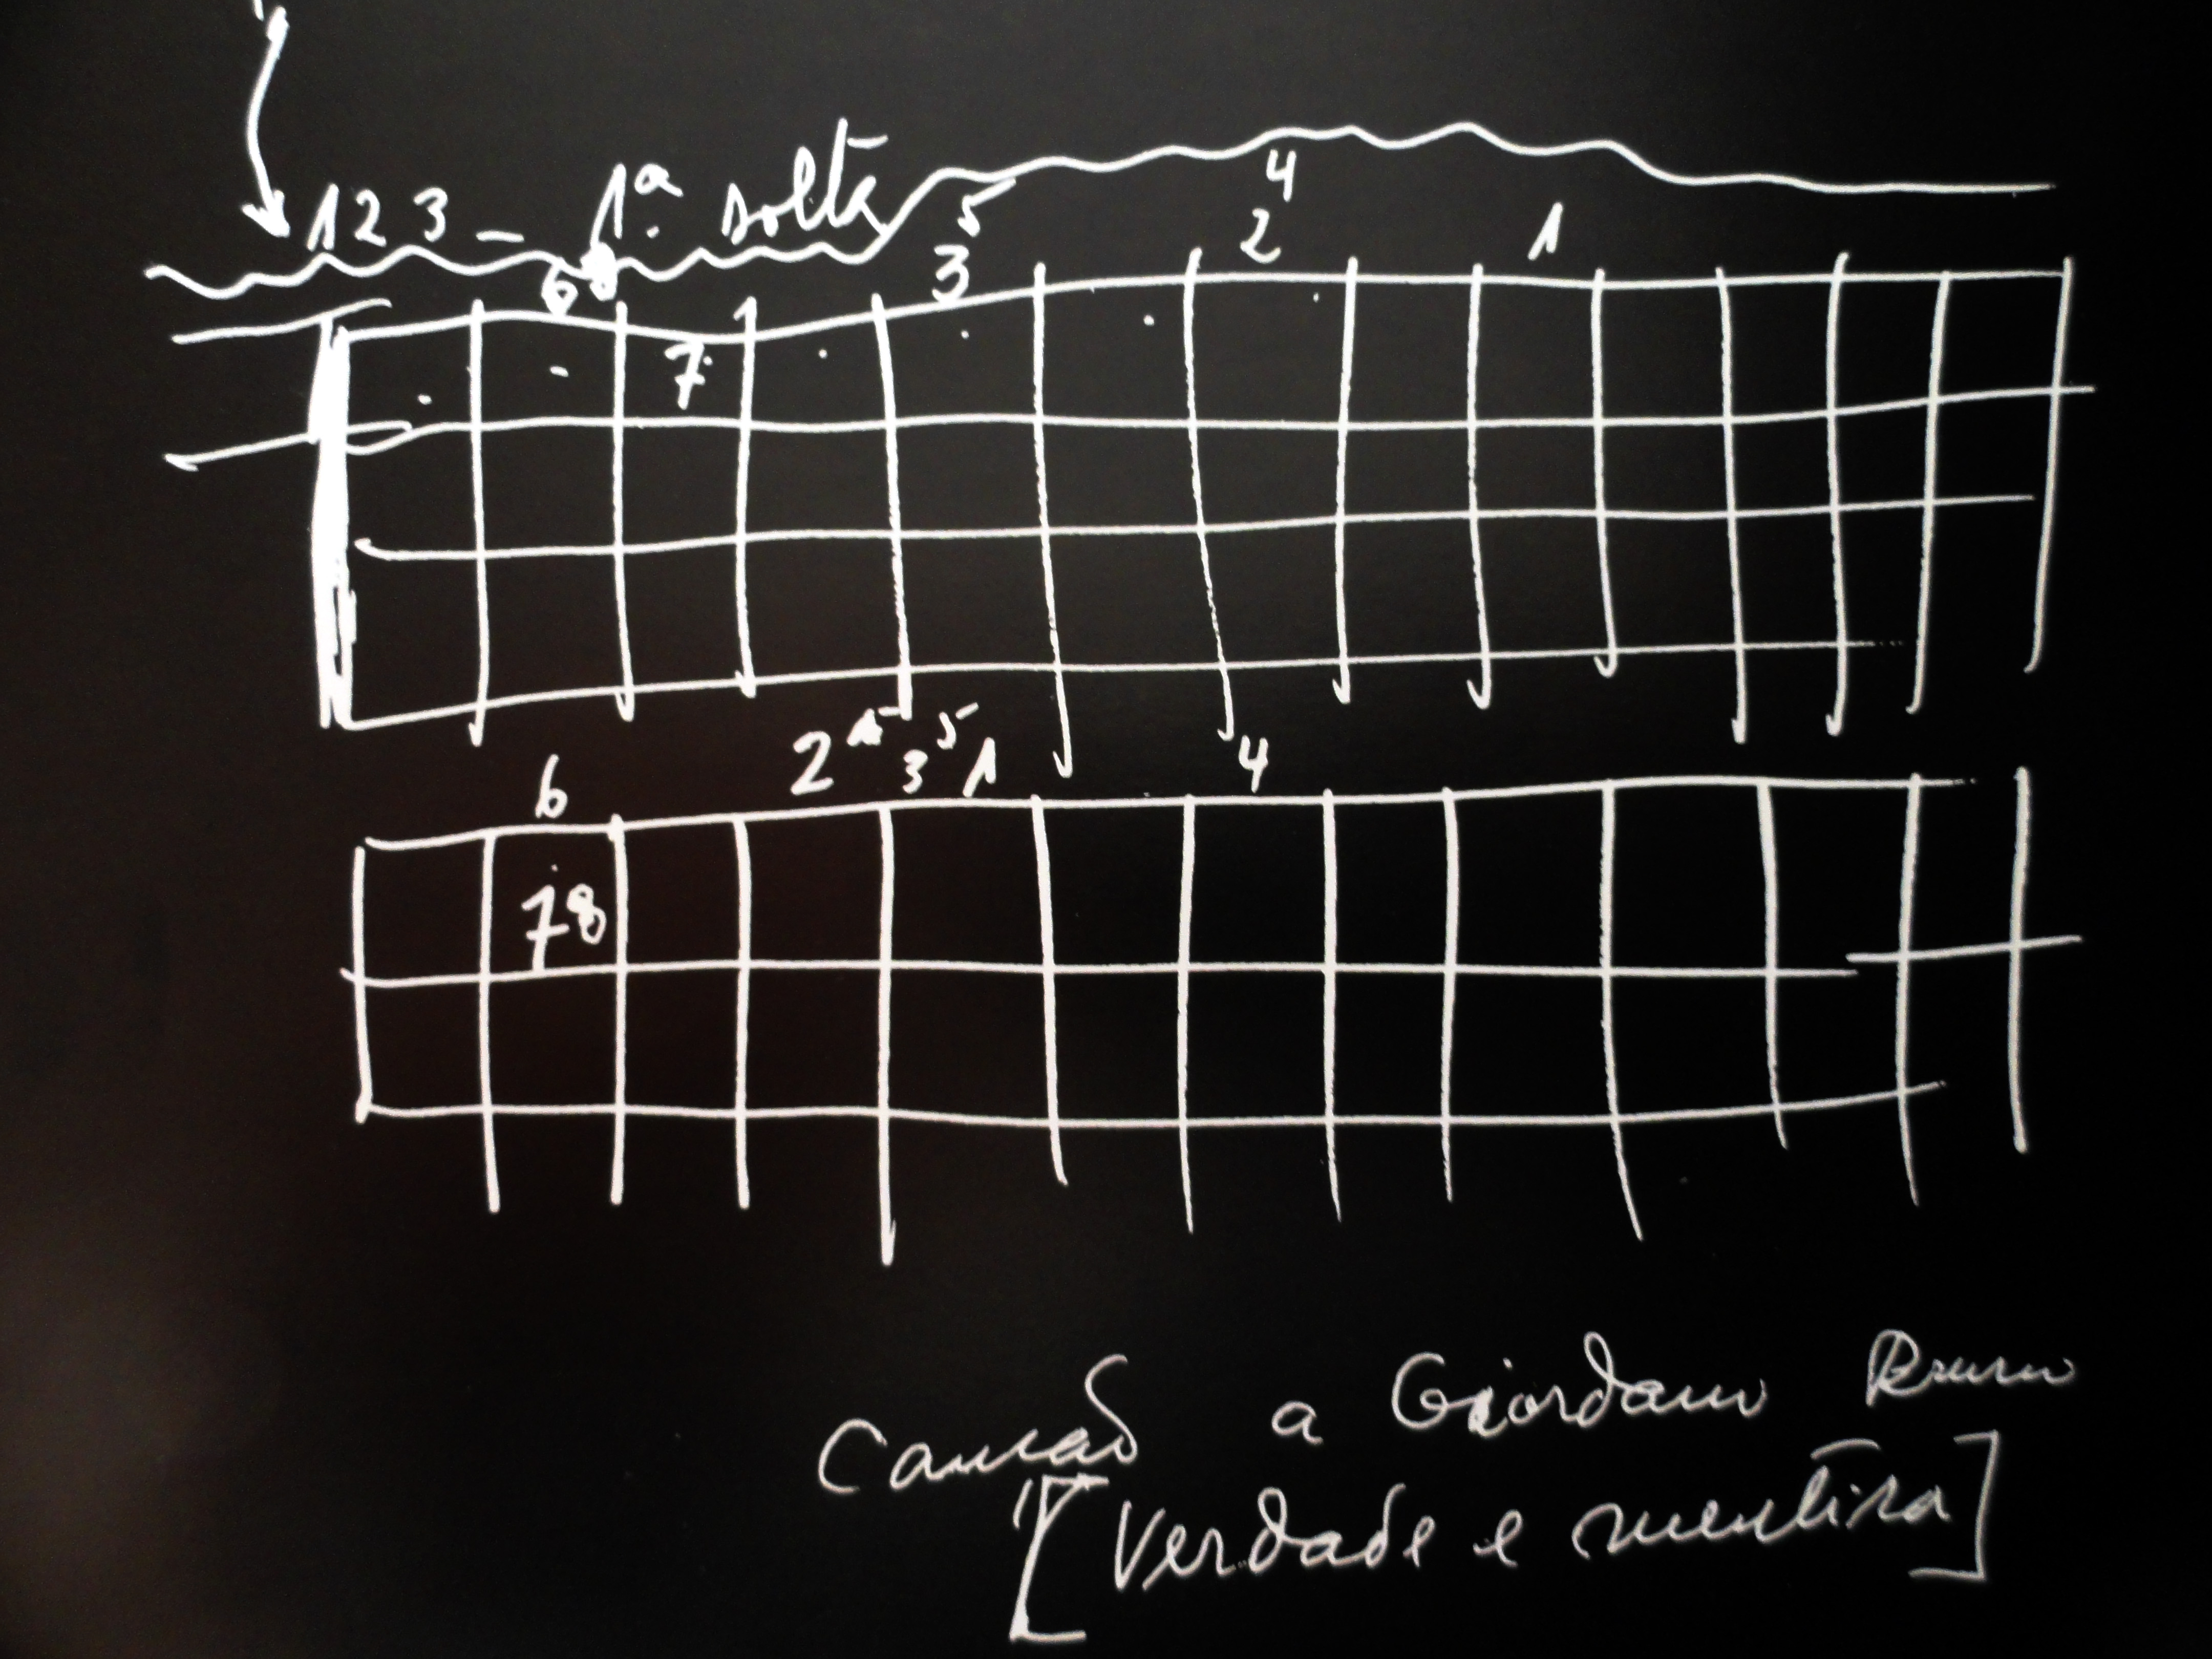 1 2 3 - 1ª solta
4
5
2
1
3
6 8
7
5
2 3 1 4
6
7 8
a Giordano Bruno
[Verdade e mentira]